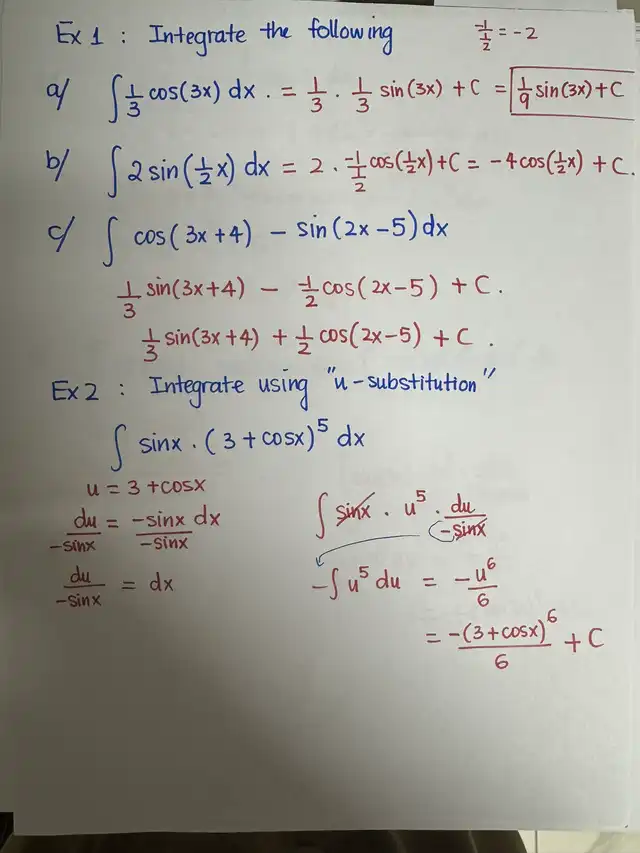 Ex 1 : Integrate the following
-1/(1/2) = -2
a/ ∫ 1/3 cos(3x) dx . = 1/3 · 1/3 sin(3x) + C = 1/9 sin(3x) + C
b/ ∫ 2 sin(1/2 x) dx = 2 · -1/(1/2) cos(1/2 x) + C = -4cos(1/2 x) + C.
c/ ∫ cos(3x+4) - sin(2x-5) dx
1/3 sin(3x+4) - -1/2 cos(2x-5) + C .
1/3 sin(3x+4) + 1/2 cos(2x-5) + C .
Ex 2 : Integrate using "u-substitution"
∫ sinx · (3+cosx)^5 dx
u = 3 + cosx
du/-sinx = -sinx dx/-sinx
du/-sinx = dx
∫ sinx · u^5 · du/-sinx
-∫ u^5 du = -u^6/6
= -(3+cosx)^6/6 + C